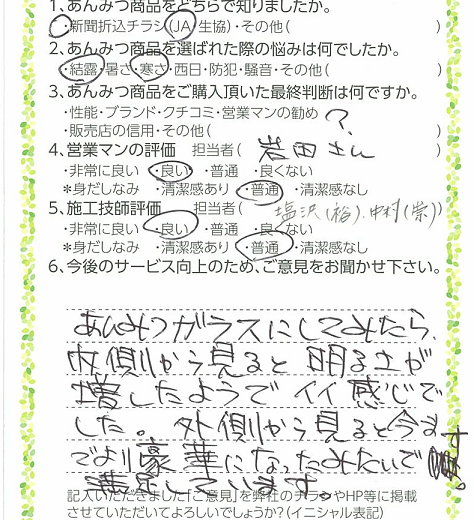 1、あんみつ商品をどちらで知りましたか。
・新聞折込チラシ(JA/生協)・その他( )
2、あんみつ商品を選ばれた際の悩みは何でしたか。
・結露・暑さ・寒さ・西日・防犯・騒音・その他( )
3、あんみつ商品をご購入頂いた最終判断は何ですか。
・性能・ブランド・クチコミ・営業マンの勧め
・販売店の信用・その他( ? )
4、営業マンの評価 担当者( 岩田さん )
・非常に良い ・良い ・普通 ・良くない
＊身だしなみ ・清潔感あり ・普通 ・清潔感なし
5、施工技師評価 担当者( 塩沢(裕)、中村(崇)
・非常に良い ・良い ・普通 ・良くない
＊身だしなみ ・清潔感あり ・普通 ・清潔感なし
6、今後のサービス向上のため、ご意見をお聞かせ下さい。
あんみつガラスにしてみたら、
内側から見ると明るさが
増したようでイイ感じで
した。外側から見ると今ま
でより豪華になったみたいです
満足しています。
記入いただきました「ご意見」を弊社のチラシやHP等に掲載
させていただいてよろしいでしょうか?(イニシャル表記)